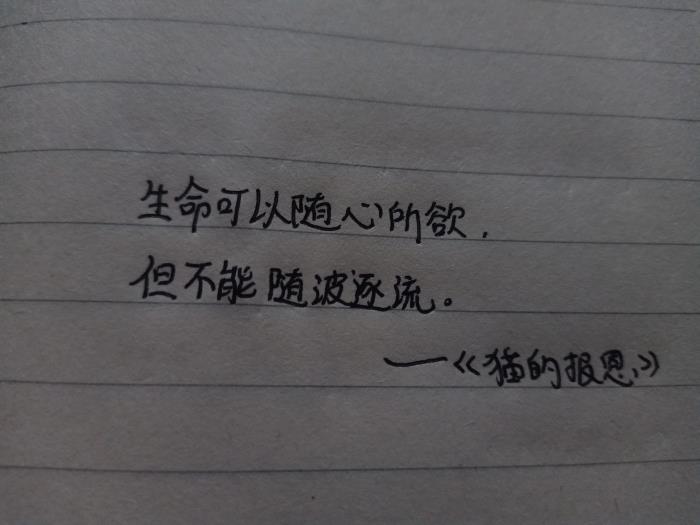 生命可以随心所欲，
但不能随波逐流。
——《猫的报恩》